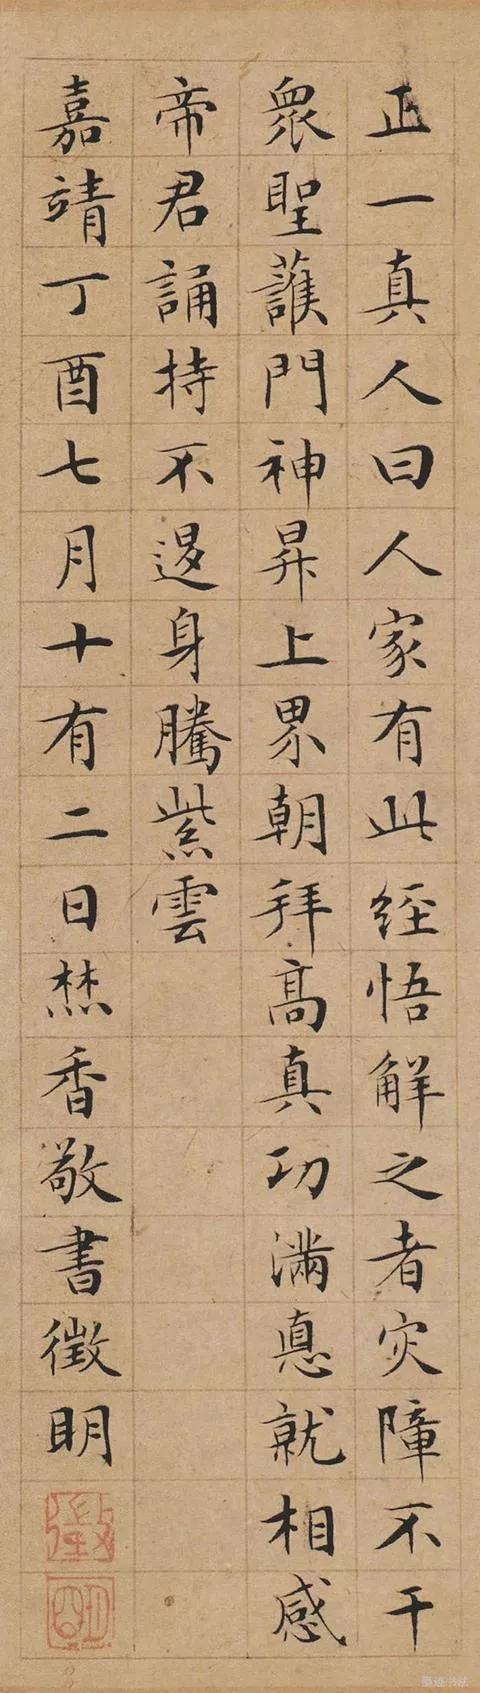 正一真人曰人家有此經悟解之者灾障不干
衆聖護門神昇上界朝拜髙真功滿悳就相感
帝君誦持不退身騰紫雲
嘉靖丁酉七月十有二日焚香敬書徵明
徵
明
墨迹书法